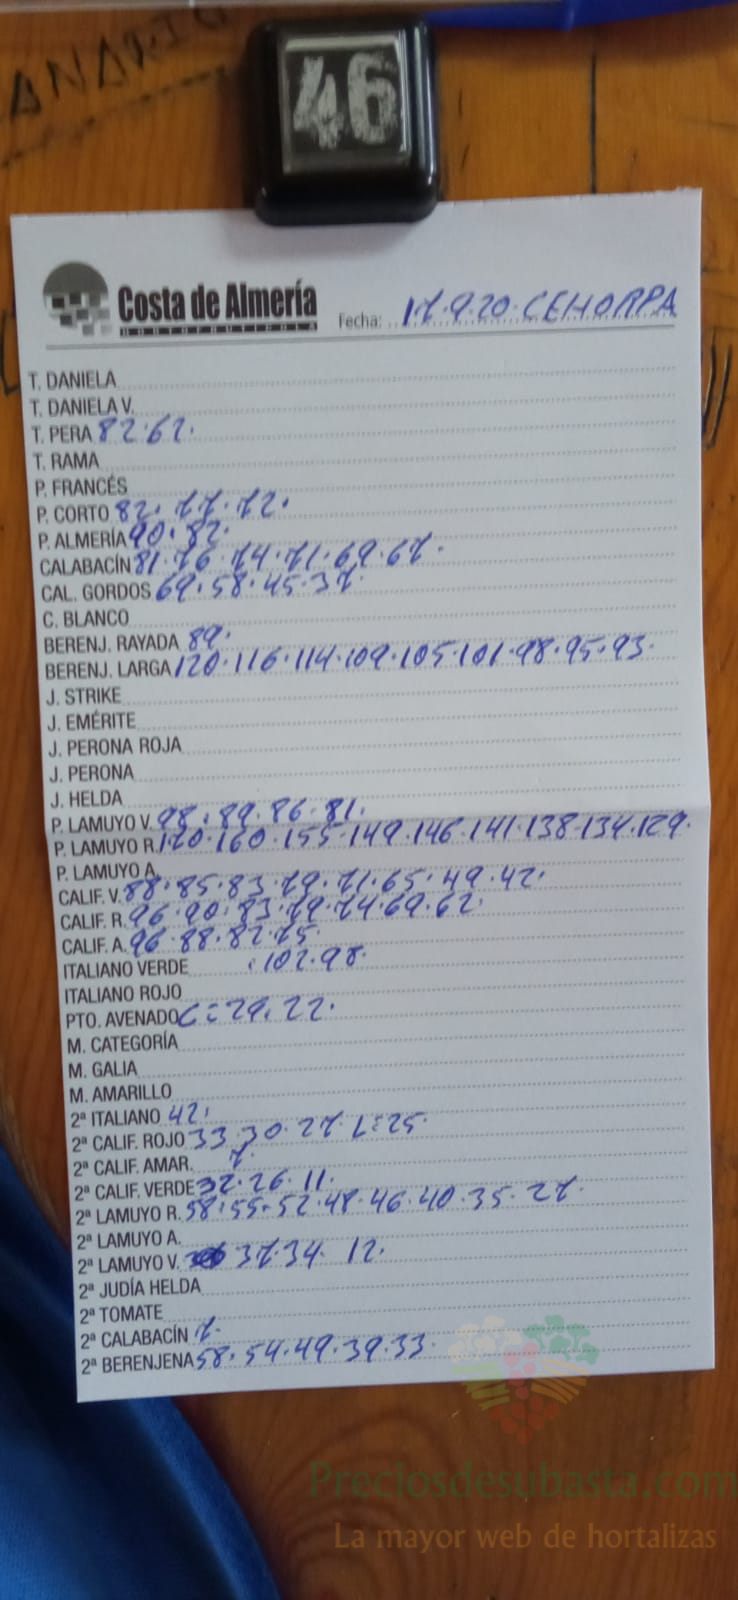 ANARIO
46
Costa de Almería
HORTOFRUTICOLA
Fecha: 17.9.20. CEHORPA
T. DANIELA
T. DANIELA V.
T. PERA 82.62.
T. RAMA
P. FRANCÉS
P. CORTO 82. 77.72.
P. ALMERÍA 90.82.
CALABACÍN 81.76.74.71.69.67.
CAL. GORDOS 69.58.45.37.
C. BLANCO
BERENJ. RAYADA 89.
BERENJ. LARGA 120.116.114.109.105.101.98.95.93.
J. STRIKE
J. EMÉRITE
J. PERONA ROJA
J. PERONA
J. HELDA
P. LAMUYO V. 98.89.86.81.
P. LAMUYO R. 170.160.155.149.146.141.138.134.129.
P. LAMUYO A.
CALIF. V. 88.85.83.79.71.65.49.42.
CALIF. R. 96.90.83.79.74.69.62.
CALIF. A. 96.88.82.75.
ITALIANO VERDE 102.98.
ITALIANO ROJO
PTO. AVENADO C=29.22.
M. CATEGORÍA
M. GALIA
M. AMARILLO
2ª ITALIANO 42.
2ª CALIF. ROJO 33 30.27. L=25.
2ª CALIF. AMAR. 7.
2ª CALIF. VERDE 32.26.11.
2ª LAMUYO R. 58.55.52.48.46.40.35.27.
2ª LAMUYO A.
2ª LAMUYO V. 37.34. 12.
2ª JUDÍA HELDA
2ª TOMATE
2ª CALABACÍN 7.
2ª BERENJENA 58.54.49.39.33.
Preciosdesubasta.com
La mayor web de hortalizas